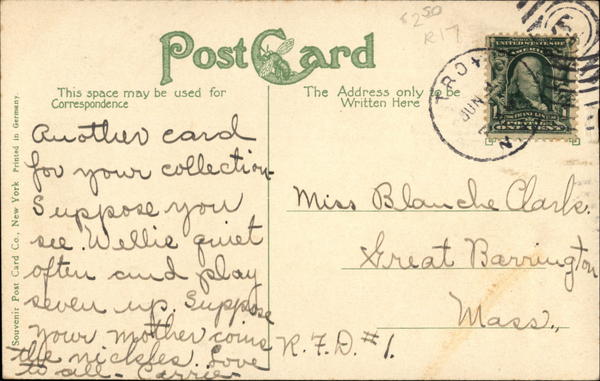 $2.50
R17
Post Card
This space may be used for
Correspondence
The Address only to be
Written Here
TROY
JUN
N.
UNITED STATES OF
AMERICA
ONE CENT
Souvenir Post Card Co., New York Printed in Germany.
Another card
for your collection.
Suppose you
see Wellie quiet
often and play
seven up. Suppose
your mother coins
the nickles. Love
to all - Carrie -
Miss Blanche Clark.
Great Barrington
Mass.,
R.F.D. #1.